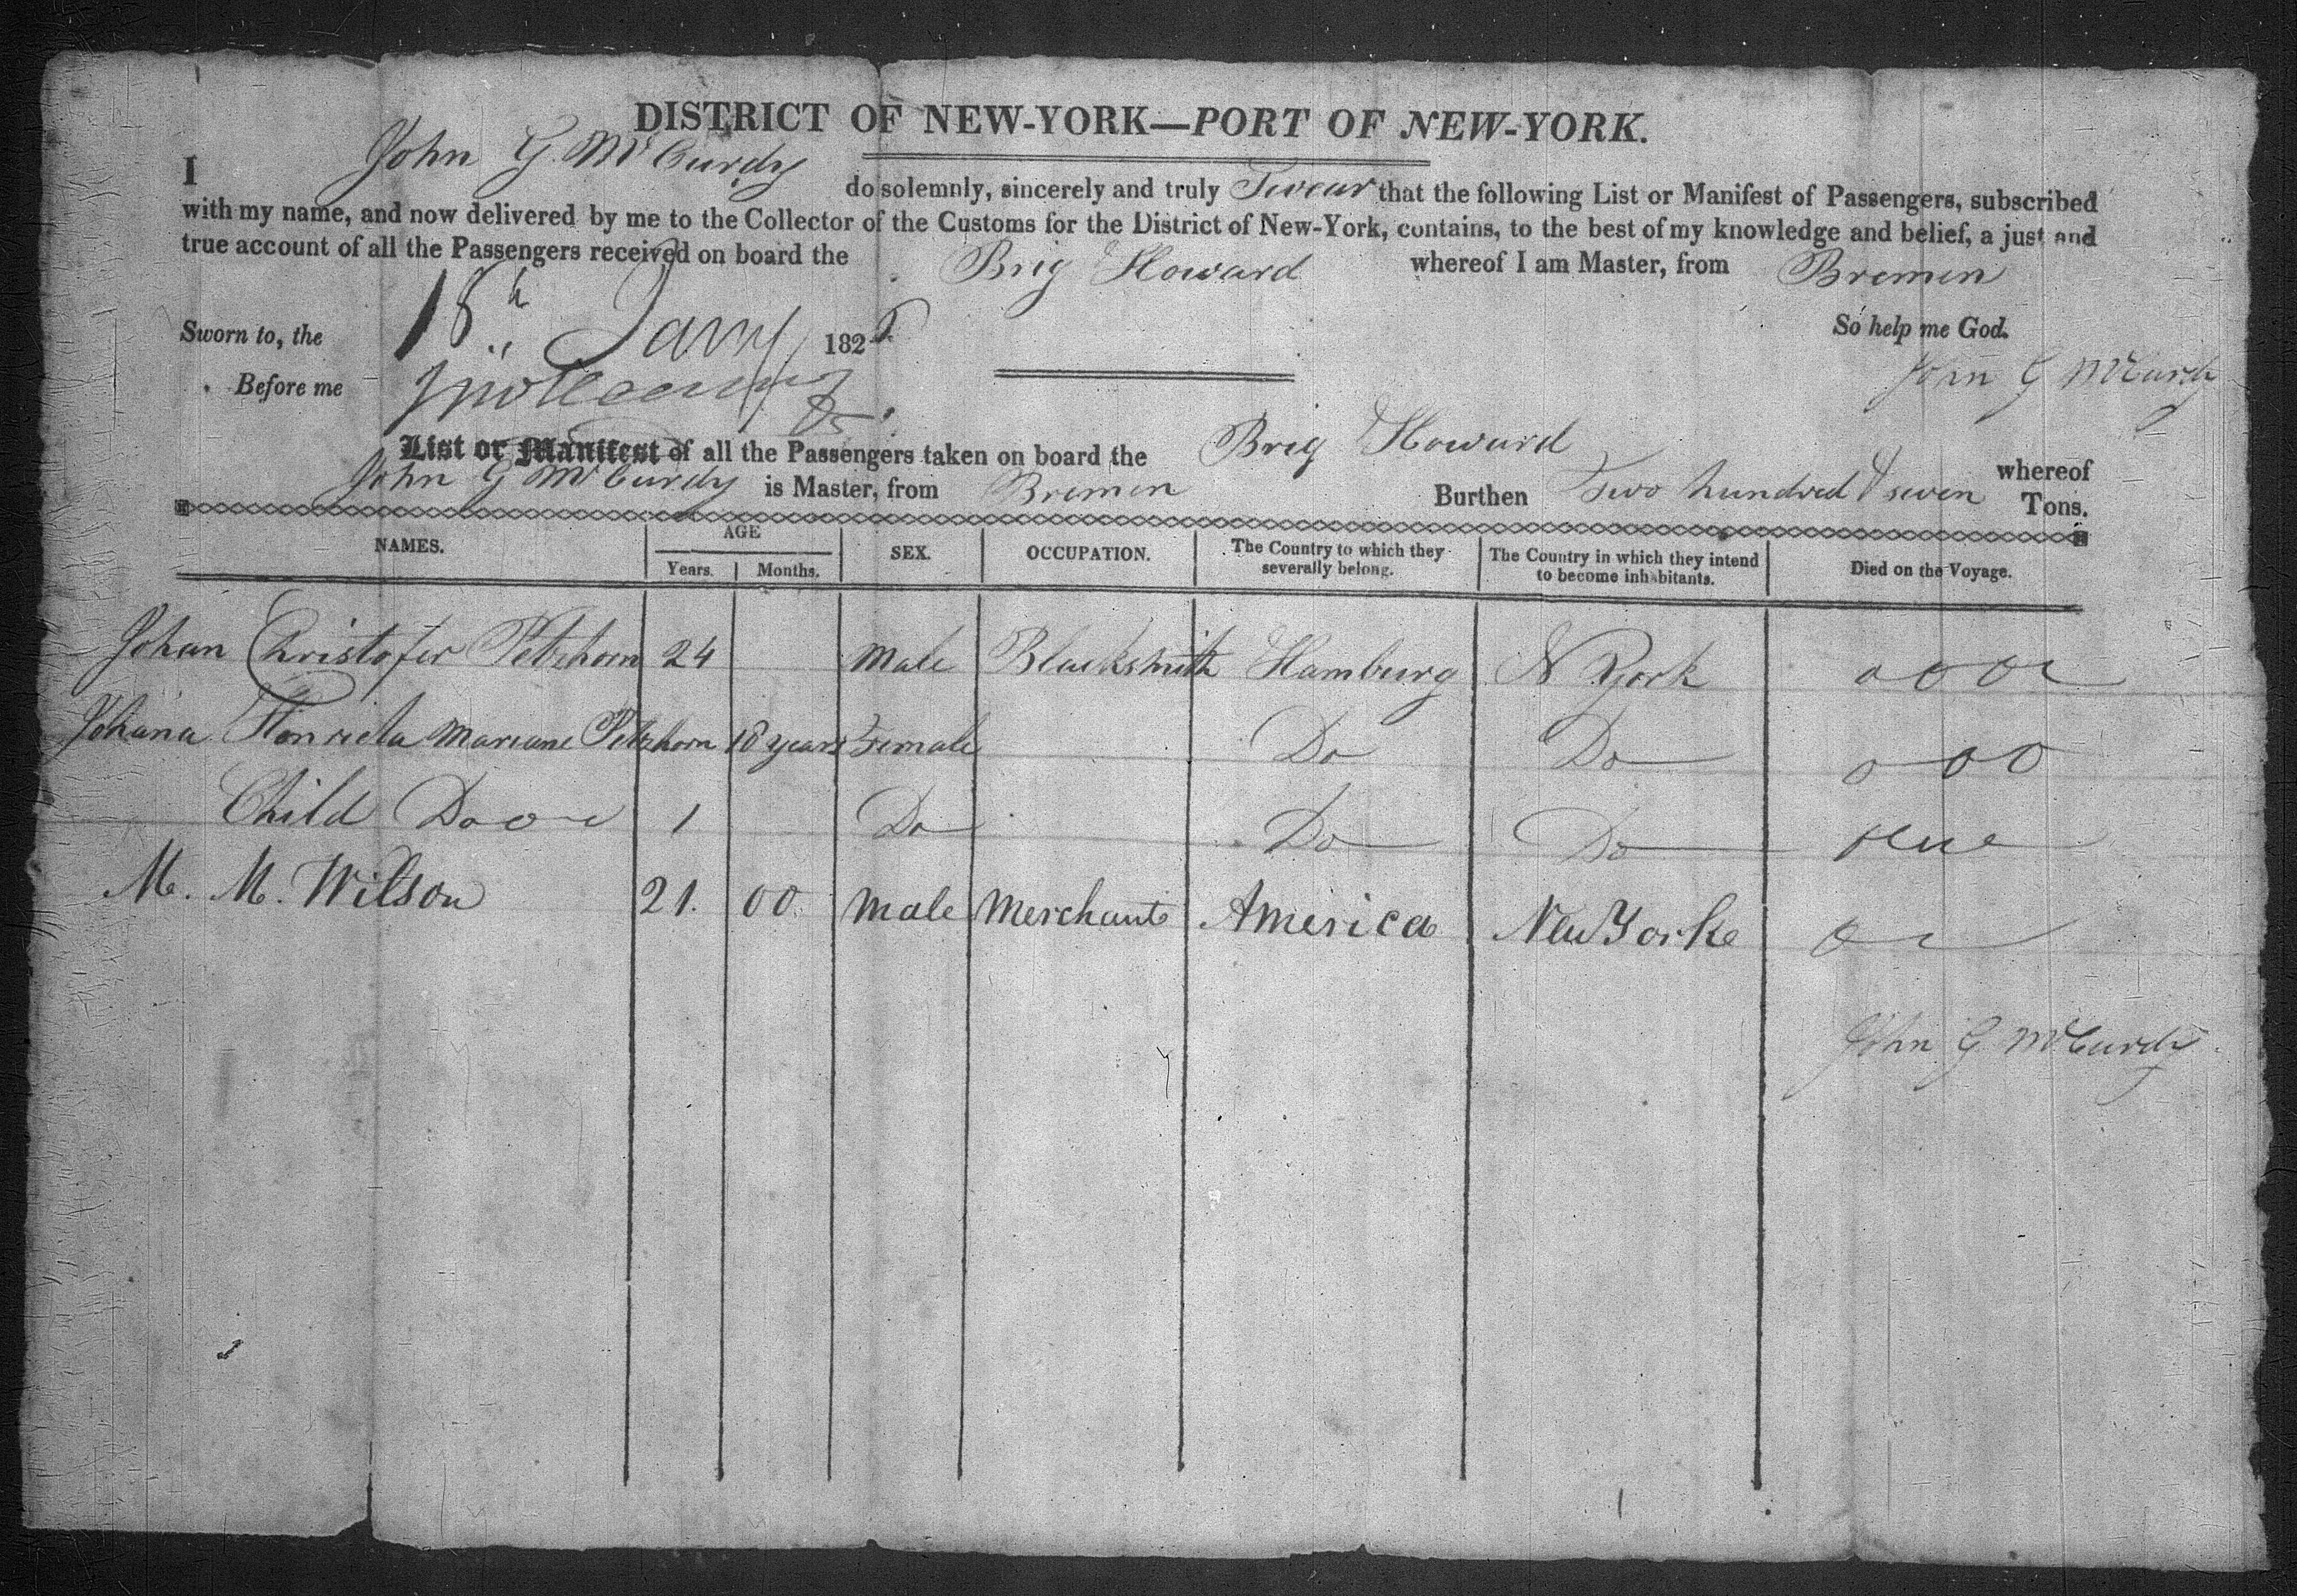 DISTRICT OF NEW-YORK—PORT OF NEW-YORK.
I John G. McCurdy do solemnly, sincerely and truly Swear that the following List or Manifest of Passengers, subscribed
with my name, and now delivered by me to the Collector of the Customs for the District of New-York, contains, to the best of my knowledge and belief, a just and
true account of all the Passengers received on board the Brig Howard whereof I am Master, from Bremen
So help me God.
Sworn to, the 18th Jany 1826
John G McCurdy
Before me
List or Manifest of all the Passengers taken on board the Brig Howard whereof
John G McCurdy is Master, from Bremen Burthen Two hundred & seven Tons.
NAMES. AGE SEX. OCCUPATION. The Country to which they severally belong. The Country in which they intend to become inhabitants. Died on the Voyage.
Years. Months.
Johan Christofer Petzhorn 24 Male Blacksmith Hamburg N York 000
Johana Henrieta Mariane Petzhorn 18 years Female Do Do 000
Child Do 1 Do Do Do
M. M. Wilson 21. 00 Male Merchant America New Yorke 0
John G McCurdy